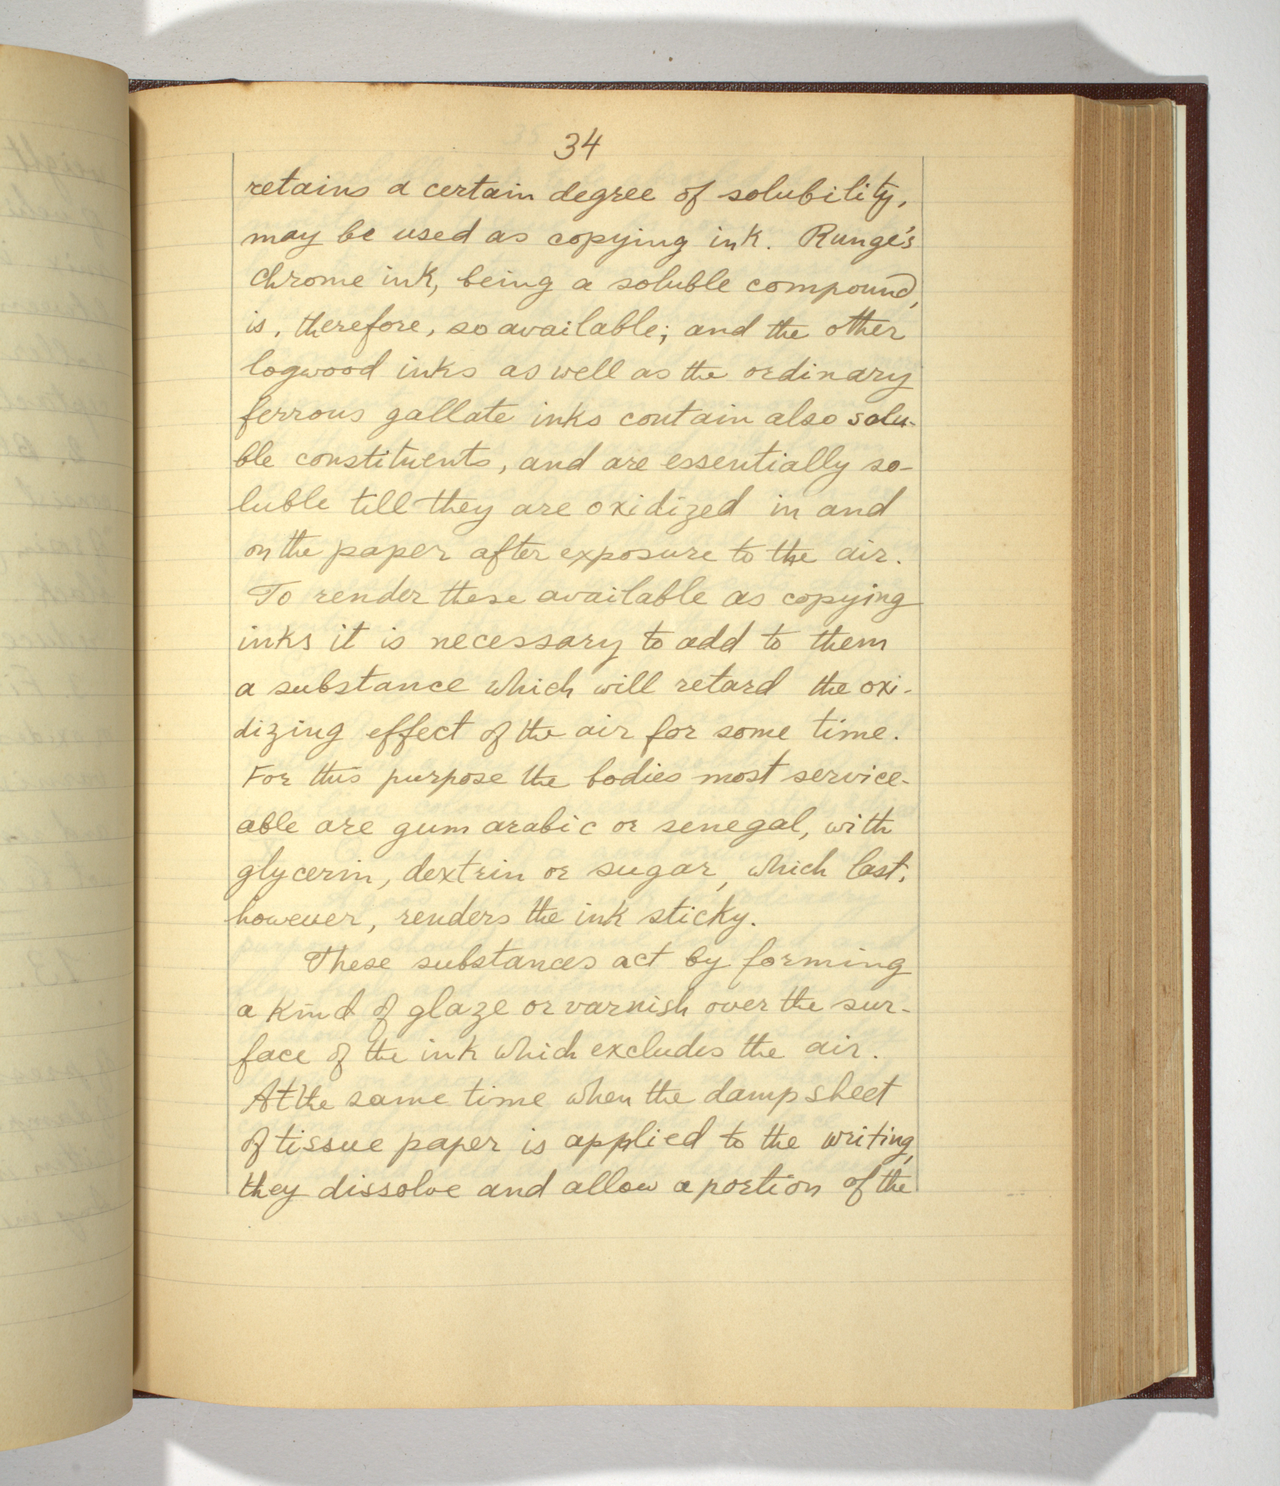 34
retains a certain degree of solubility,
may be used as copying ink. Runge's
chrome ink, being a soluble compound,
is, therefore, so available; and the other
logwood inks as well as the ordinary
ferrous gallate inks contain also solu-
ble constituents, and are essentially so-
luble till they are oxidized in and
on the paper after exposure to the air.
To render these available as copying
inks it is necessary to add to them
a substance which will retard the oxi-
dizing effect of the air for some time.
For this purpose the bodies most service-
able are gum arabic or senegal, with
glycerin, dextrin or sugar, which last,
however, renders the ink sticky.
These substances act by forming
a kind of glaze or varnish over the sur-
face of the ink which excludes the air.
At the same time when the damp sheet
of tissue paper is applied to the writing,
they dissolve and allow a portion of the